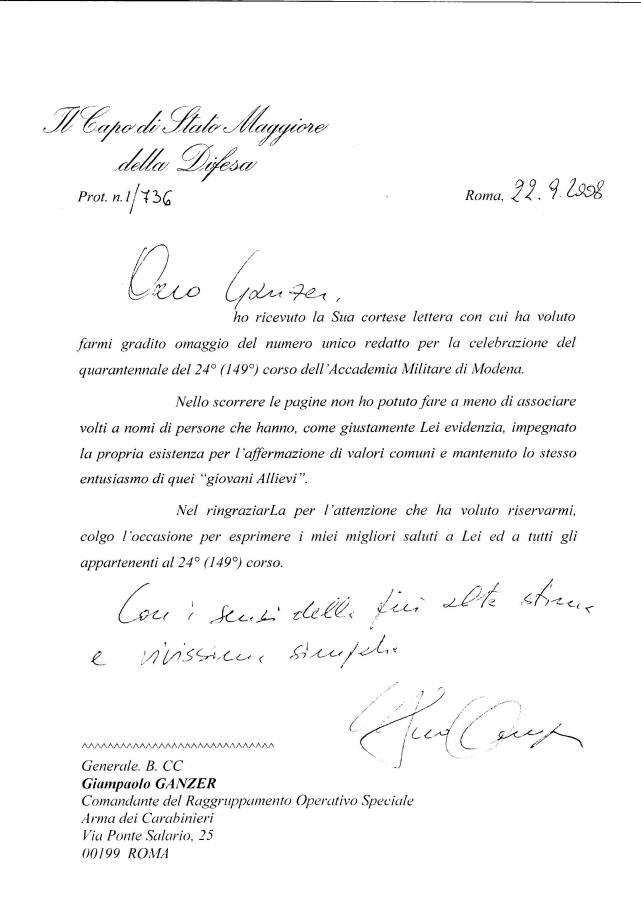 Il Capo di Stato Maggiore
della Difesa
Prot. n.1/736
Roma, 22.9.2008
Caro Ganzer,
ho ricevuto la Sua cortese lettera con cui ha voluto
farmi gradito omaggio del numero unico redatto per la celebrazione del
quarantennale del 24° (149°) corso dell'Accademia Militare di Modena.
Nello scorrere le pagine non ho potuto fare a meno di associare
volti a nomi di persone che hanno, come giustamente Lei evidenzia, impegnato
la propria esistenza per l'affermazione di valori comuni e mantenuto lo stesso
entusiasmo di quei “giovani Allievi”.
Nel ringraziarLa per l'attenzione che ha voluto riservarmi,
colgo l'occasione per esprimere i miei migliori saluti a Lei ed a tutti gli
appartenenti al 24° (149°) corso.
Con i sensi della più alta stima
e vivissima simpatia
^^^^^^^^^^^^^^^^^^^^^^^^^^^^^^
Generale. B. CC
Giampaolo GANZER
Comandante del Raggruppamento Operativo Speciale
Arma dei Carabinieri
Via Ponte Salario, 25
00199 ROMA